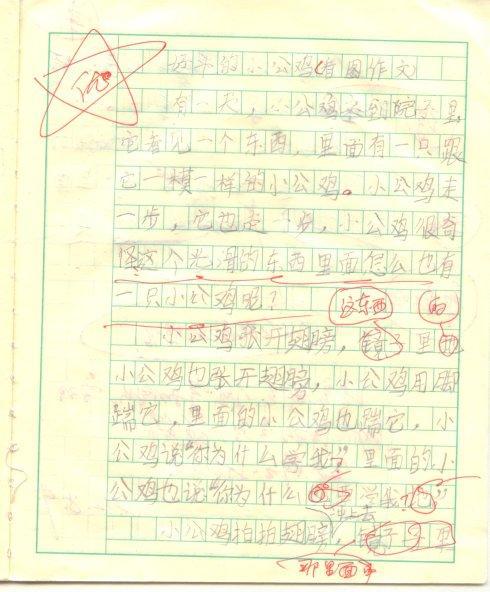 优
好斗的小公鸡(看图作文
有一天，小公鸡来到院子里
它看见一个东西，里面有一只跟
它一模一样的小公鸡。小公鸡走
一步，它也走一步，小公鸡很奇
怪这个光滑的东西里面怎么也有
一只小公鸡呢？
这东西 的
小公鸡张开翅膀，镜子里的
小公鸡也张开翅膀，小公鸡用脚
踹它，里面的小公鸡也踹它，小
公鸡说“你为什么学我？”里面的小
公鸡也说“你为什么学我”
冲上去
小公鸡拍拍翅膀，镜子里
那里面